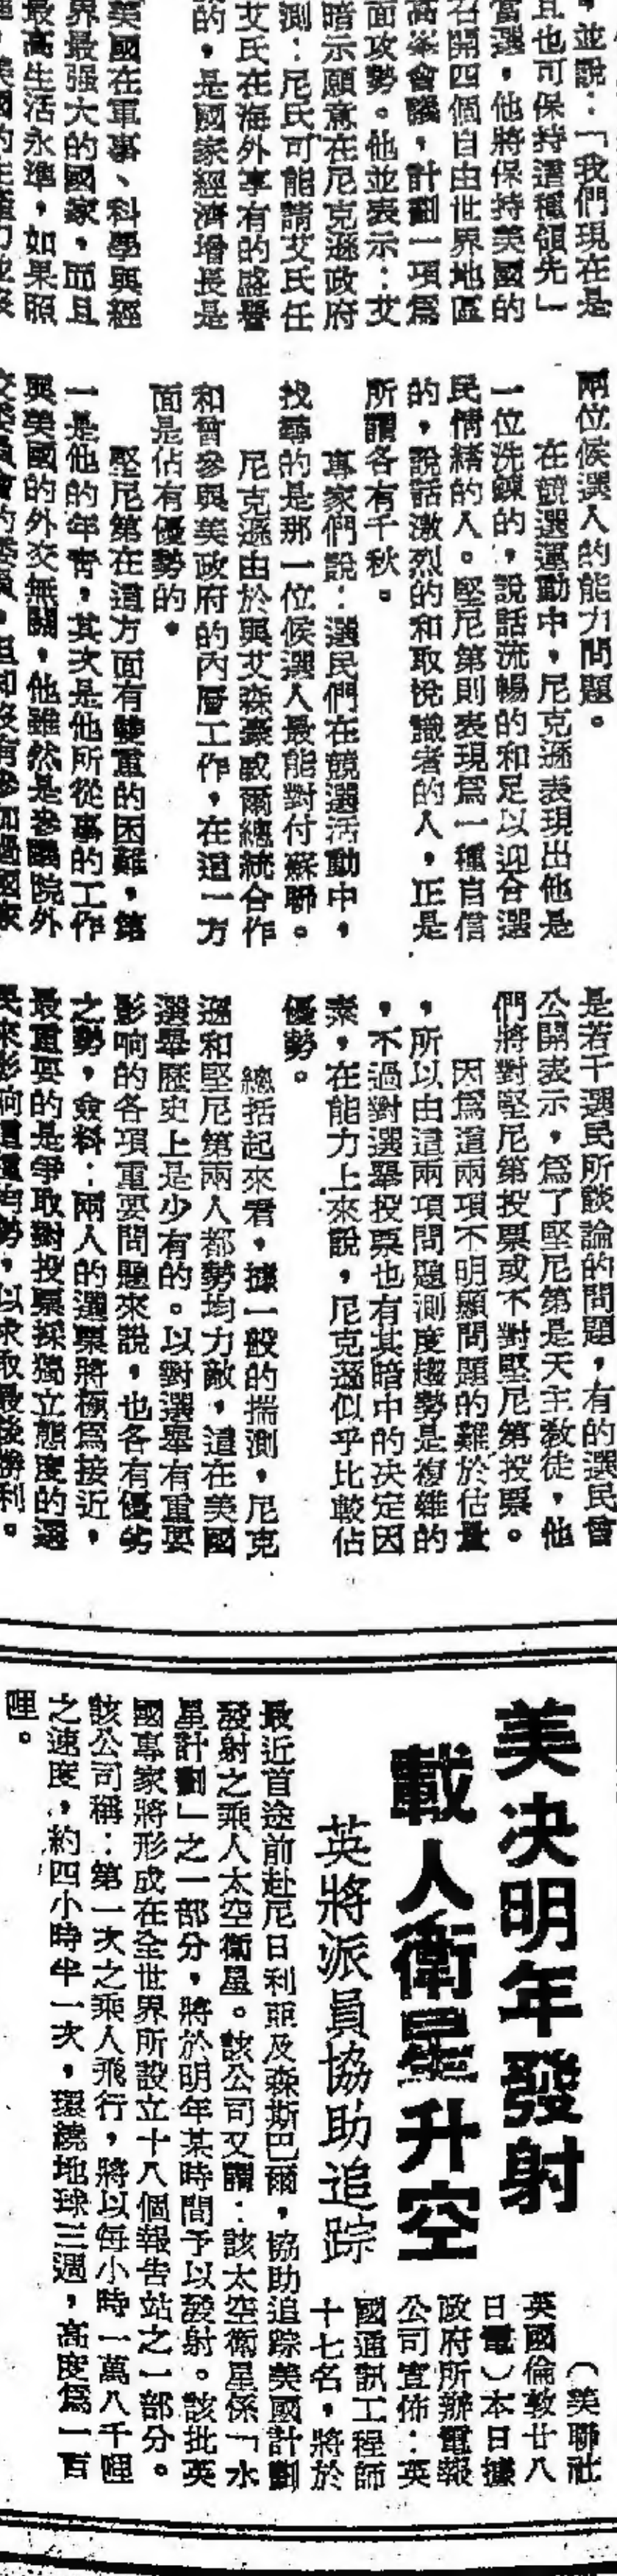 ，並說：「我們現在是
且也可保持這種領先」
當選，他將保持美國的
召開四個自由世界地區
高峯會議，計劃一項爲
面攻勢。他並表示：艾
暗示願意在尼克遜政府
測：尼氏可能請艾氏任
艾氏在海外享有的盛譽
的，是國家經濟增長是
美國在軍事、科學與經
界最强大的國家，而且
最高生活水準，如果照
兩位候選人的能力問題。
在競選運動中，尼克遜表現出他是
一位洗鍊的，說話流暢的和足以迎合選
民情緒的人。堅尼第則表現爲一種自信
的，說話激烈的和取悅識者的人，正是
所謂各有千秋。
專家們說：選民們在競選活動中，
找尋的是那一位候選人最能對付蘇聯。
尼克遜由於與艾森豪威爾總統合作
和曾參與美政府的內層工作，在這一方
面是佔有優勢的。
堅尼第在這方面有雙重的困難，第
一是他的年青，其次是他所從事的工作
與美國的外交無關，他雖然是參議院外
是若干選民所談論的問題，有的選民曾
公開表示，爲了堅尼第是天主敎徒，他
們將對堅尼第投票或不對堅尼第投票。
因爲這兩項不明顯問題的難於估量
，所以由這兩項問題測度趨勢是複雜的
，不過對選舉投票也有其暗中的決定因
素，在能力上來說，尼克遜似乎比較佔
優勢。
總括起來看，據一般的揣測，尼克
遜和堅尼第兩人都勢均力敵，這在美國
選舉歷史上是少有的。以對選舉有重要
影响的各項重要問題來說，也各有優劣
之勢，僉料：兩人的選票將極爲接近，
最重要的是爭取對投票採獨立態度的選
民來影响這種均勢，以求取最後勝利。
美決明年發射
載人衛星升空
英將派員協助追踪
（美聯社
英國倫敦廿八
日電）本日據
政府所辦電報
公司宣佈：英
國通訊工程師
十七名，將於
最近首途前赴尼日利亞及森斯巴爾，協助追踪美國計劃
發射之乘人太空衛星。該公司又謂：該太空衛星係「水
星計劃」之一部分，將於明年某時間予以發射。該批英
國專家將形成在全世界所設立十八個報告站之一部分。
該公司稱：第一次之乘人飛行，將以每小時一萬八千哩
之速度，約四小時半一次，環繞地球三週，高度爲一百
哩。